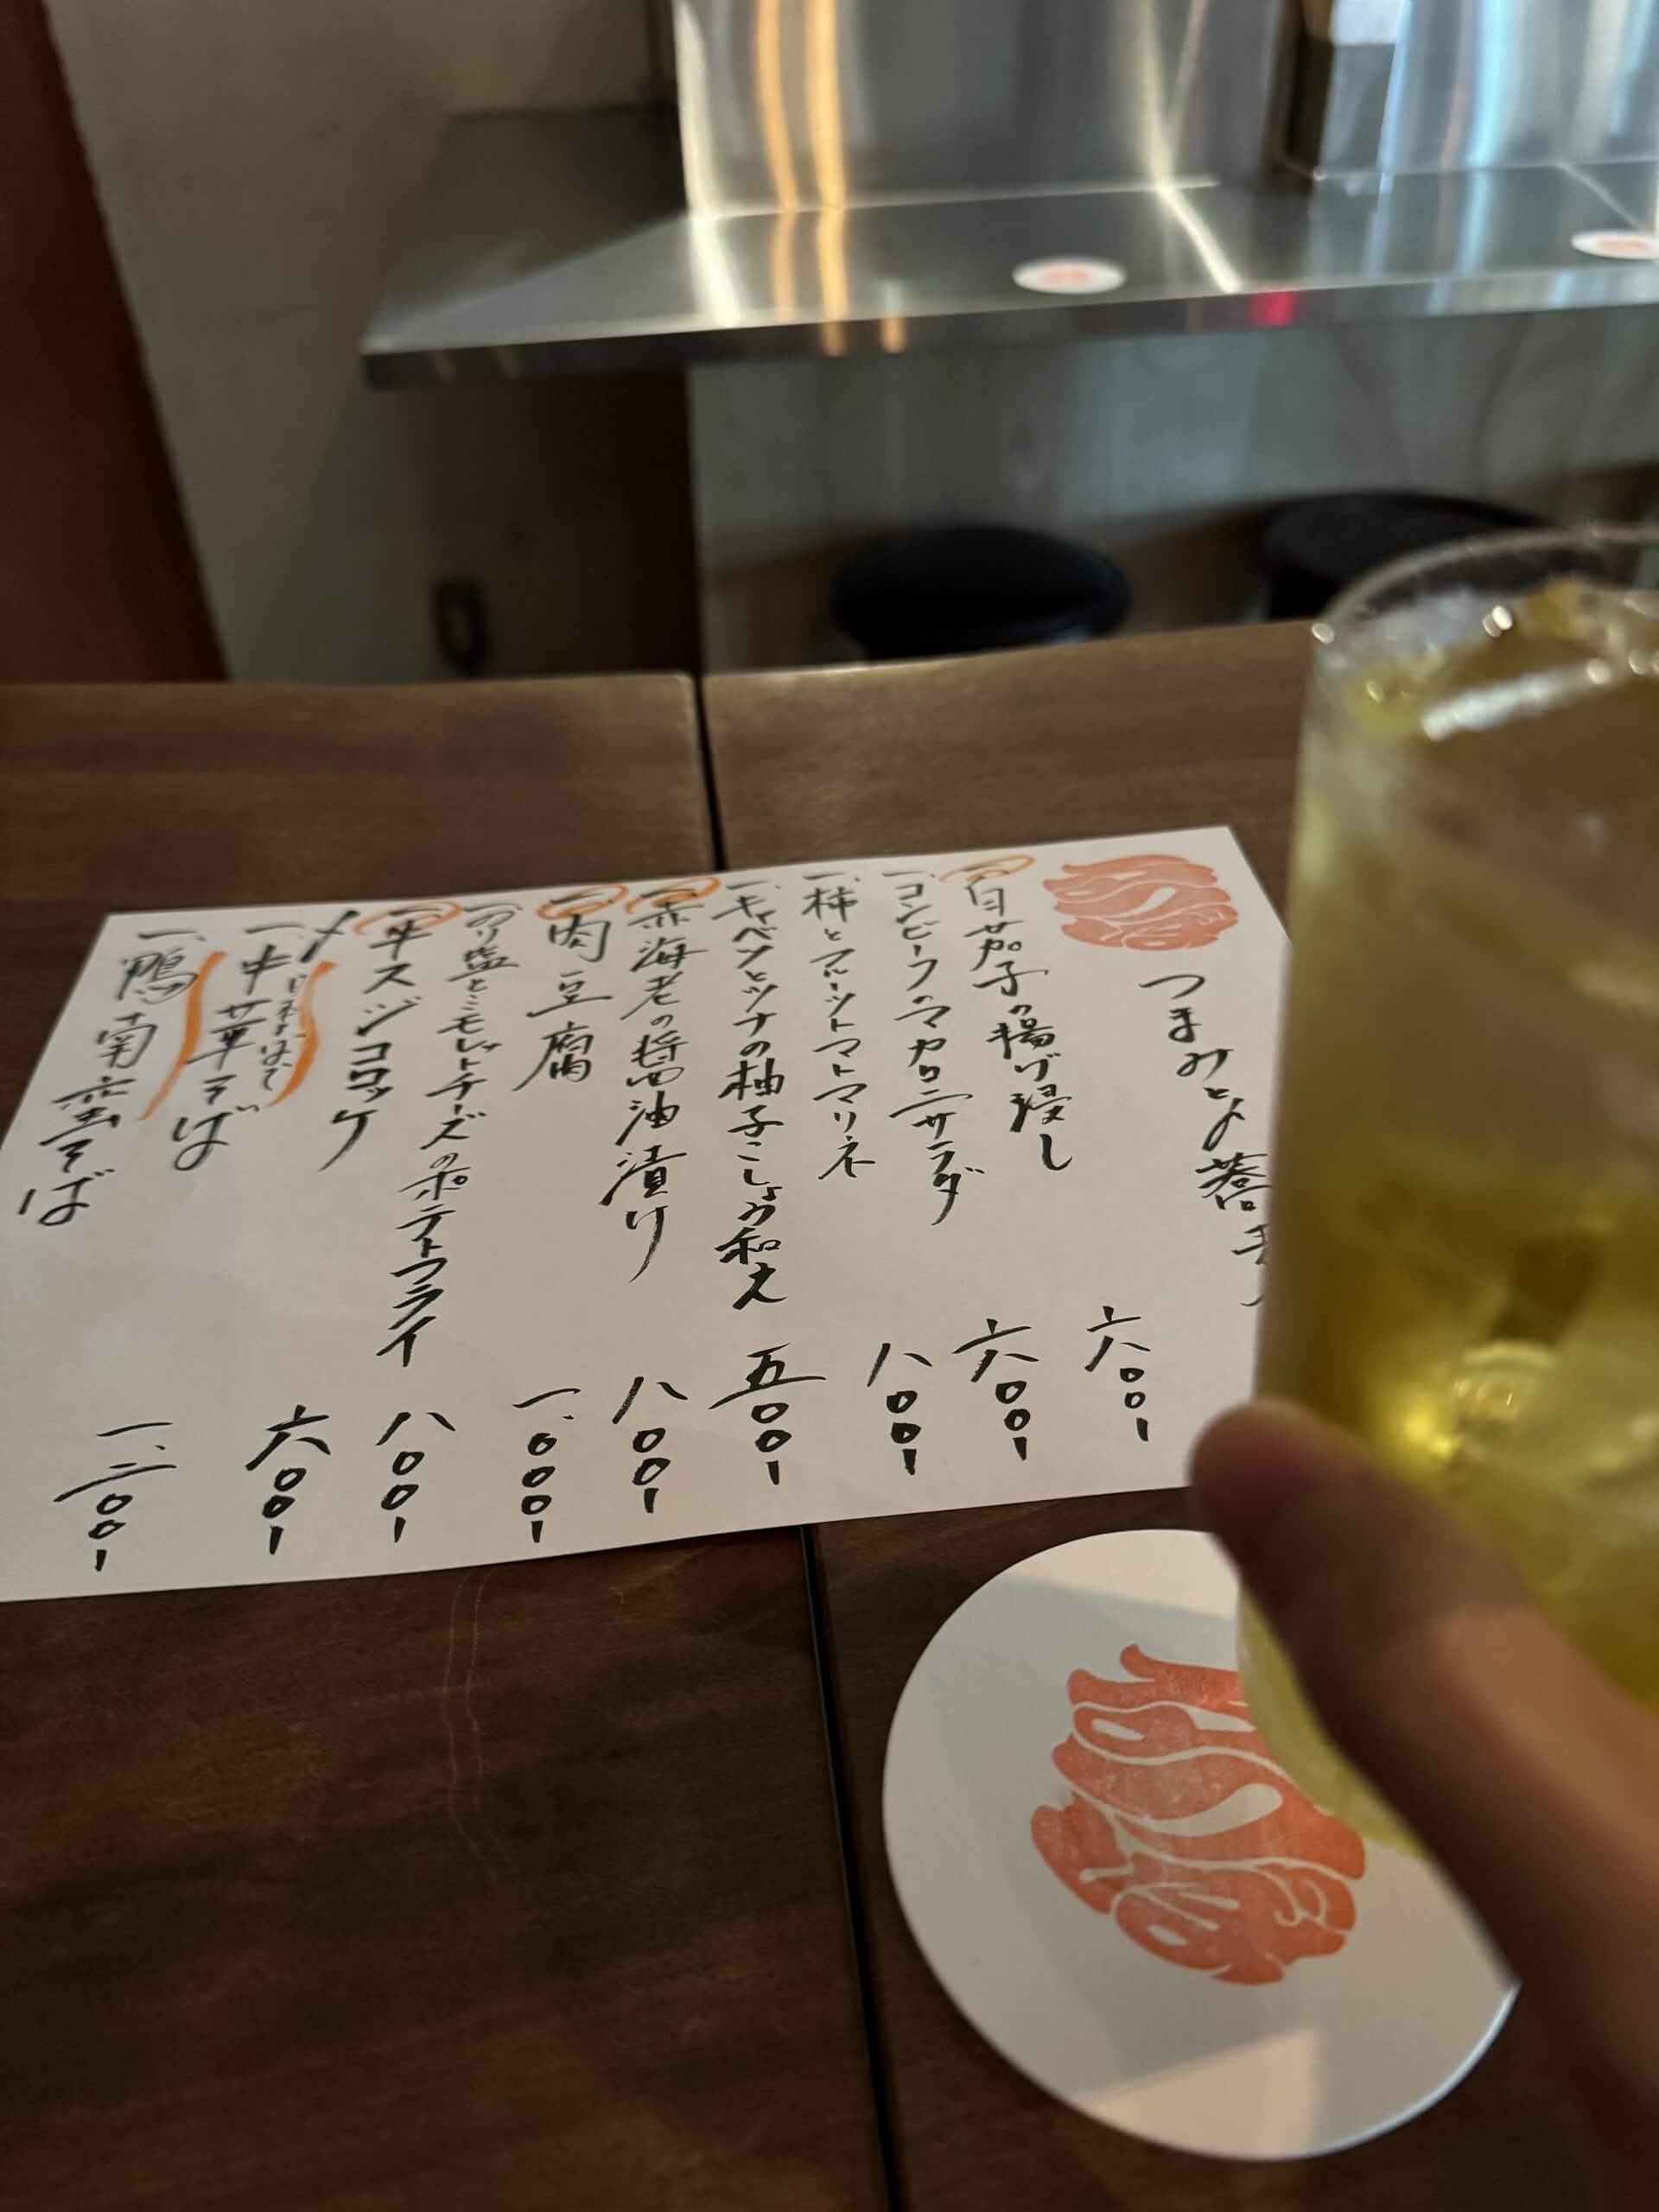 つまみと〆蕎
一、白茄子の揚げ浸し 六〇〇-
一、コンビーフのマカロニサラダ 六〇〇-
一、柿とフルーツトマトマリネ 八〇〇-
一、キャベツとツナの柚子こしょう和え 五〇〇-
一、赤海老の醤油漬け 八〇〇-
一、肉豆腐 一、〇〇〇-
一、のり塩とミモレットチーズのポテトフライ 八〇〇-
一、牛スジコロッケ 六〇〇-
〆
一、中華そば
一、鴨南蛮そば 一、二〇〇-